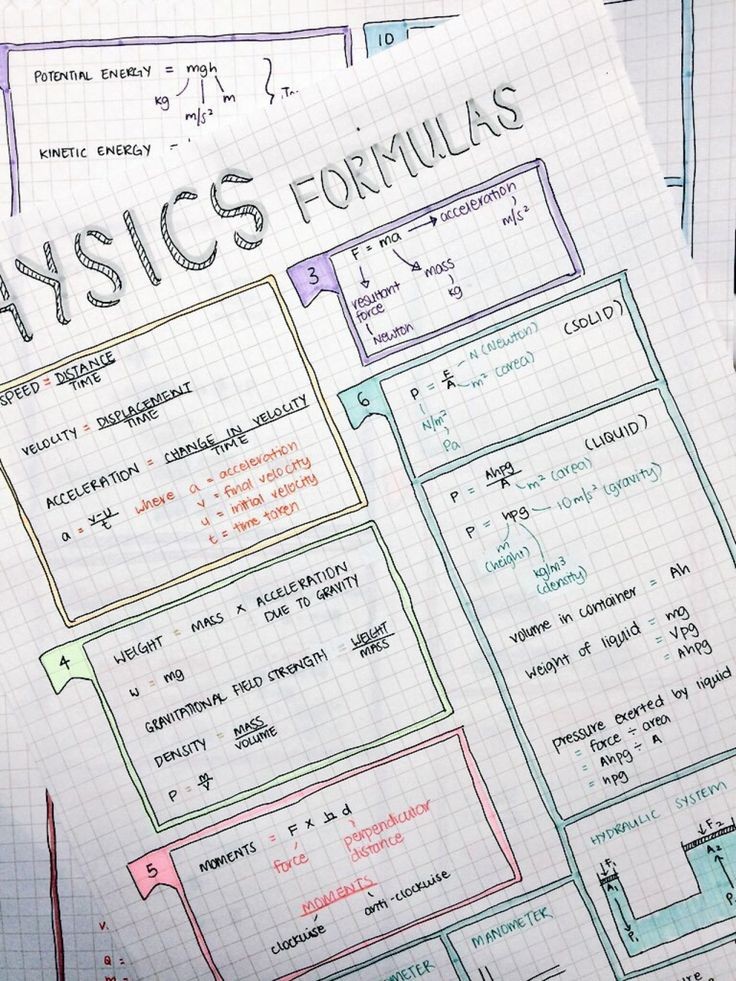 POTENTIAL ENERGY = mgh
kg
m/s²
m
KINETIC ENERGY =
10
PHYSICS FORMULAS
SPEED = DISTANCE
TIME
VELOCITY = DISPLACEMENT
TIME
ACCELERATION = CHANGE IN VELOCITY
TIME
a = v-u
t
where a = acceleration
v = final velocity
u = initial velocity
t = time taken
3
F = ma → acceleration
m/s²
resultant
force
Newton
mass
kg
4
WEIGHT = MASS X ACCELERATION
DUE TO GRAVITY
W = mg
GRAVITATIONAL FIELD STRENGTH = WEIGHT
MASS
DENSITY = MASS
VOLUME
P = m
V
5
MOMENTS = F X ⊥ d
force
perpendicular
distance
MOMENTS
clockwise
anti-clockwise
6
(SOLID)
P = F
A
N (Newton)
m² (area)
N/m²
Pa
(LIQUID)
P = Ahpg
A
m² (area)
P = hpg
10 m/s² (gravity)
m
(height)
kg/m³
(density)
volume in container = Ah
weight of liquid = mg
= Vpg
= Ahpg
pressure exerted by liquid
= force ÷ area
= Ahpg ÷ A
= hpg
HYDRAULIC SYSTEM
F₁
A₁
P₁
F₂
A₂
MANOMETER
V.
Q =